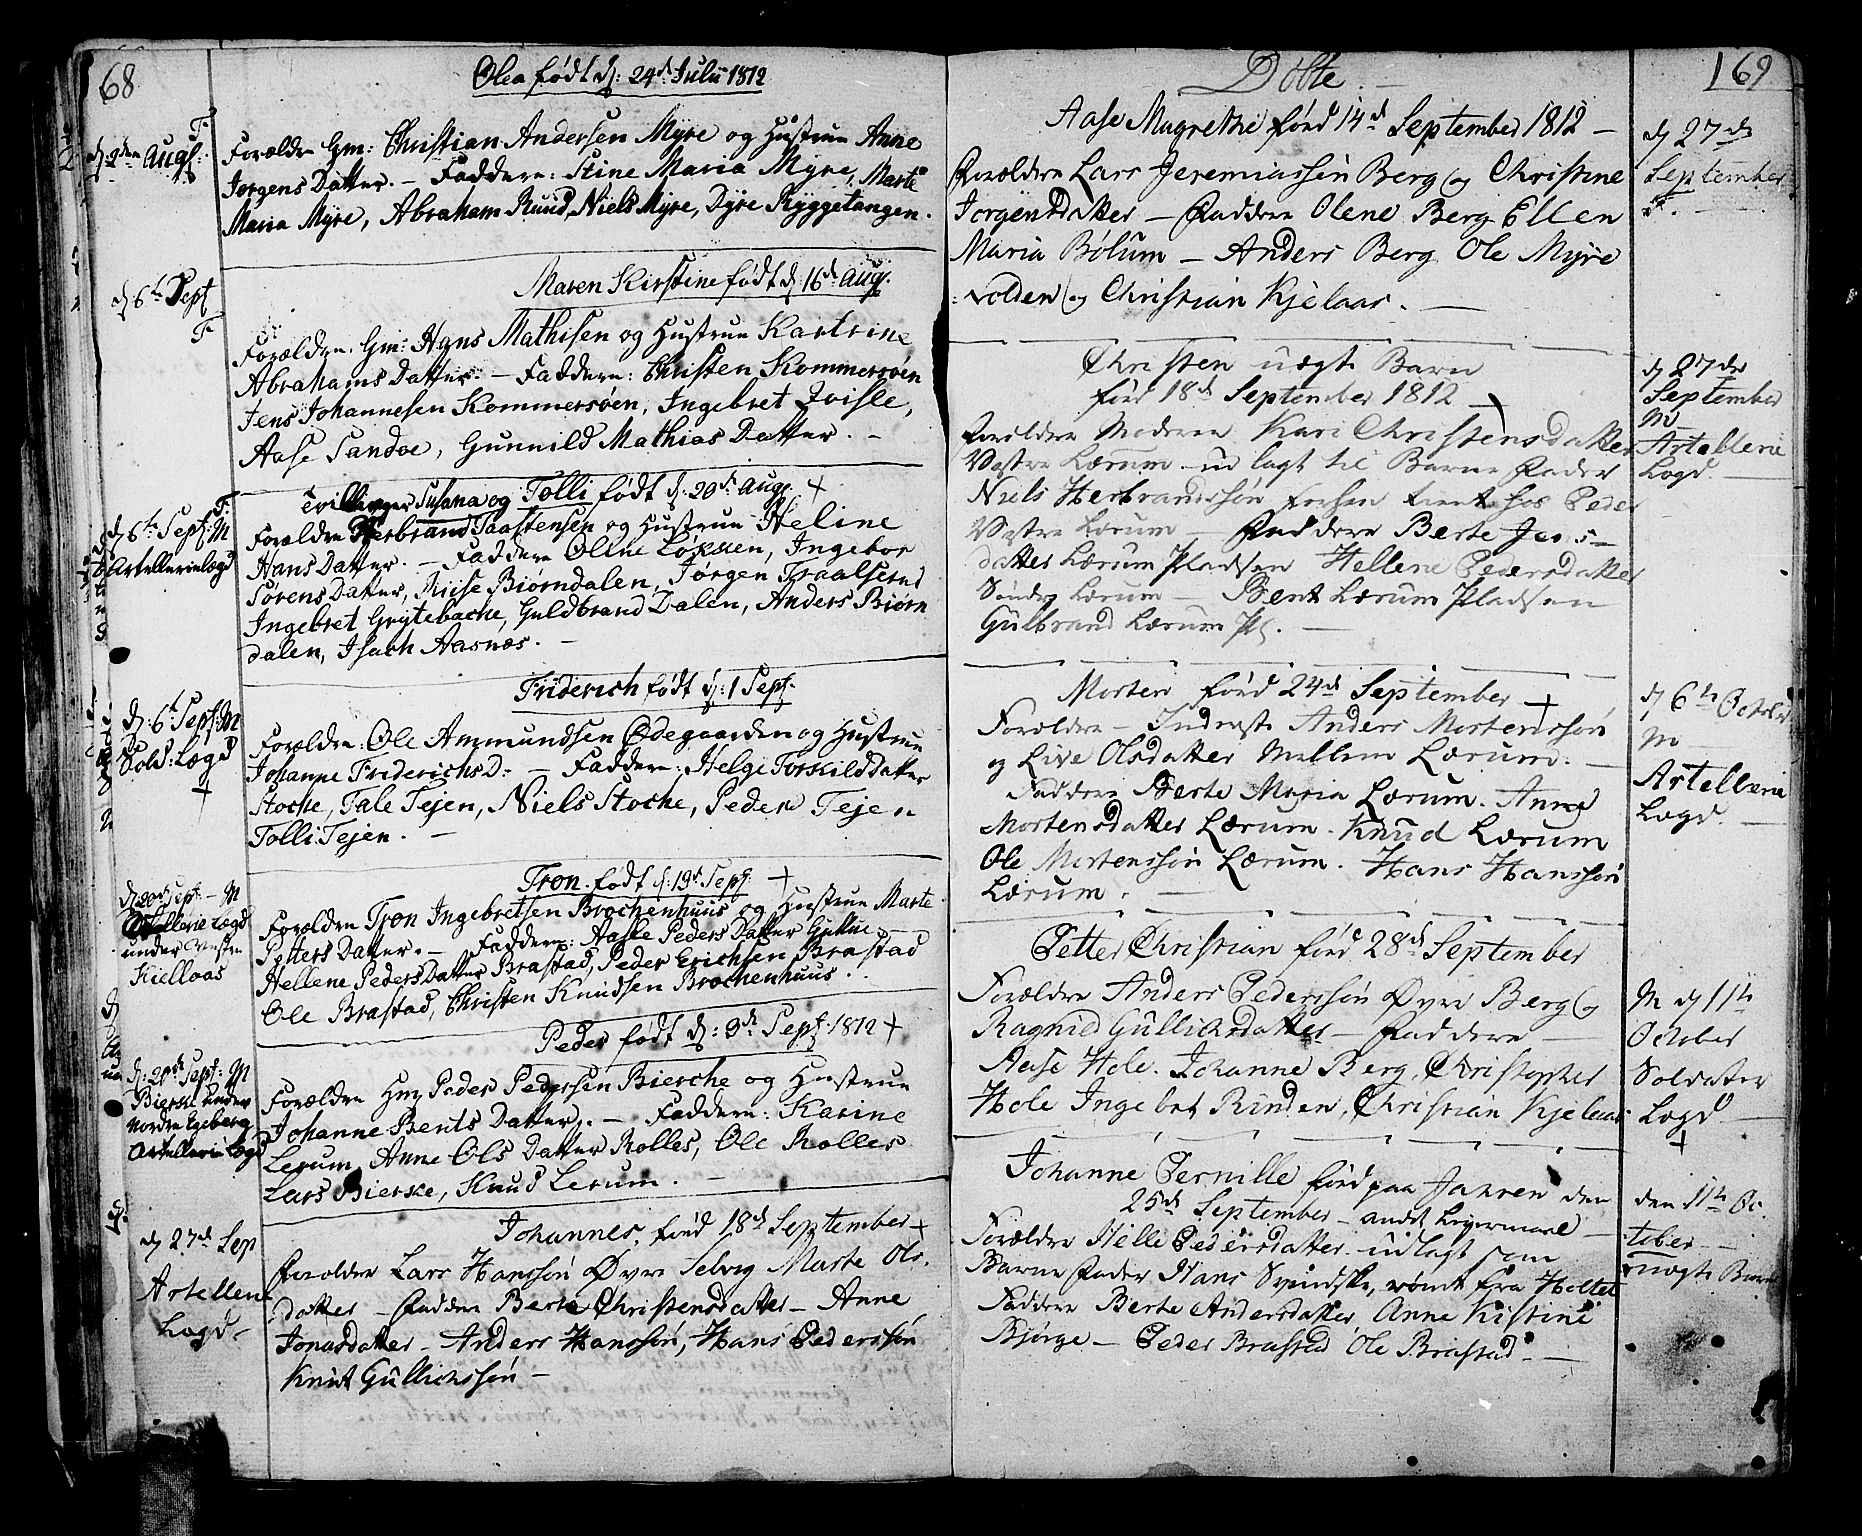 68
Olea født d: 24d Julii 1812
F.
d 2den Augs:
Forældre Gm: Christian Andersen Myre og Hustrue Anne
Jørgens Datter. – Faddere: Stine Maria Myre, Marte
Maria Myre, Abraham Ruud, Niels Myre, Dyre Ryggetangen.
Maren Kirstine født d: 16d Aug.
d 6te Sept
F
Forældre. Gm: Hans Mathisen og Hustrue Kartrine
Abrahams Datter. – Faddere: Christen Kommersøen
Jens Johannesen Kommersøen, Ingebret Tvisle,
Aase Sandoe, Gunnild Mathias Datter. –
Tvillinger Susana og Tolli født d. 20d Aug. +
F.
d 6te Sept: M
Artellerielægd
Forældre Herbrand Taastensen og Hustrue Heline
Hans Datter. – Faddere Olline Løkken, Ingebor
Sørens Datter, Riise Biørndalen, Jørgen Traalserud
Ingebret Grytebache, Guldbrand Dalen, Anders Biørn
dalen, Isach Aasnæs. –
Friderich født d: 1 Sept.
d. 6t Sept: M
Sold: Lægd
+
Forældre: Ole Ammundsen Ødegaarden og Hustrue
Johanne FriderichsD: – Faddere: Helge TorskildDatter
Stoche, Tale Tejen, Niels Stoche, Peder Tejen
Tolli Tejen. –
Tron. født d: 19d Sept: +
d 20de Sept: – M
Artellerie Lægd
under Vestre
Kielloas
Forældre Tron Ingebretsen Brochenhuus og Hustrue Marte
Petters Datter. – Faddere: Aaste Peders Datter
Hellene Peders Datter Brastad, Peder Erichsen Brastad
Ole Brastad, Christen Knudsen Brochenhuus.
Peder født d: 3d Sept. 1812 +
d: 20de Sept: M
Bierske under
Nordre Egeberg
Artellerie Lægd
Forældre Gm Peder Pedersen Bierche og Hustrue
Johanne Bents Datter. – Faddere: Karine
Lerum, Anne Ols Datter Rolles, Ole Rolles
Lars Bierske, Knud Lerum. –
Johannes, fød 18d September +
d 27d Sep
Artelleri
Lægd –
Forældre Lars Hanssøn Øvre Selvig Marte Ols
datter – Faddere Berte Christensdatter – Anne
Jonasdatter – Anders Hanssøn, Hans Pederssøn
Knut Gullichssøn –
Døbte. –
169
Aase Magrethe fød 14d September 1812 –
d 27de
September
F. –
Forældere Lars Jeremiassøn Berg og Christine
Jorgensdatter – Faddere Olene Berg Ellen
Maria Bølum – Anders Berg Ole Myre
volden og Christian Kjelaas. –
Christen uægte Barn
fød 18d September 1812 –
d 27de
September
M
Artelleri
Lægd. –
Forældere Moderen Kari Christensdatter
Vestre Lærum – udlagt til Barne Fader
Niels Herbrandssøn hos Peder
Vestre Lærum – Faddere Berte Jens-
datter Lærum Pladsen Hellene Pedersdatter
Søndre Lærum – Bent Lærum Pladsen
Gulbrand Lærum Pl. –
Morten fød 24d September +
d 6te October
M –
Artelleri
Lægd. –
Forældre – Inderste Anders Mortenssøn
og Live Olsdatter Mellem Lærum. –
Faddere Berte Maria Lærum. Anne
Mortensdatter Lærum. Knud Lærum
Ole Mortenssøn Lærum. Hans Hanssøn
Lærum. –
Petter Christian fød 28d September
M d 11te
October
Soldater
Lægd –
+
Forældre Anders Pederssøn Øvre Berg og
Ragnild Gullichsdatter – Faddere –
Aase Hole. Johanne Berg, Christopher
Hole Ingebret Rinden, Christian Kjelaas
Johanne Pernille fød paa Jahren den
25d September – andet Leyermaal –
den 11te Oc
tober –
uægte Barn
Forældre Helle Pedersdatter udlagt som
Barne Fader Hans Svindske, rømt fra Holtet
Faddere Berte Andersdatter, Anne Kistine
Bjørge – Peder Brastad Ole Brastad –